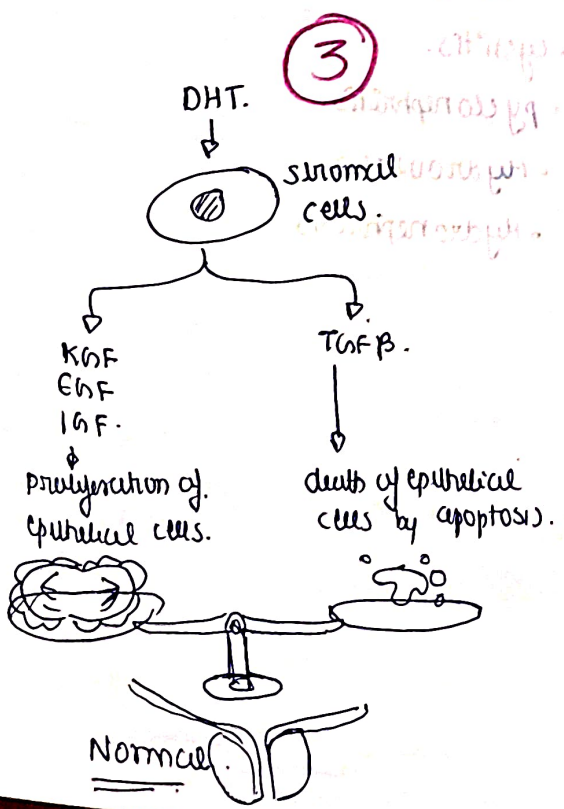 3
DHT.
stromal
cells.
KGF
EGF
IGF.
TGF β.
proliferation of
epithelial cells.
death of epithelial
cells by apoptosis.
Normal